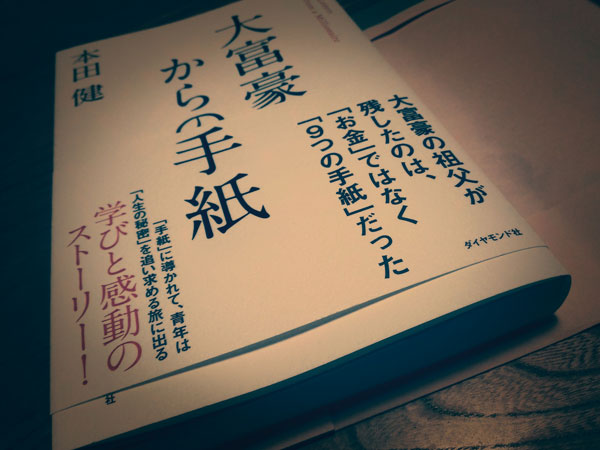 大富豪
からの手紙
本田 健
大富豪の祖父が
残したのは、
「お金」ではなく
「9つの手紙」だった
「手紙」に導かれて、青年は
「人生の秘密」を追い求める旅に出る
学びと感動の
ストーリー!
ダイヤモンド社
社